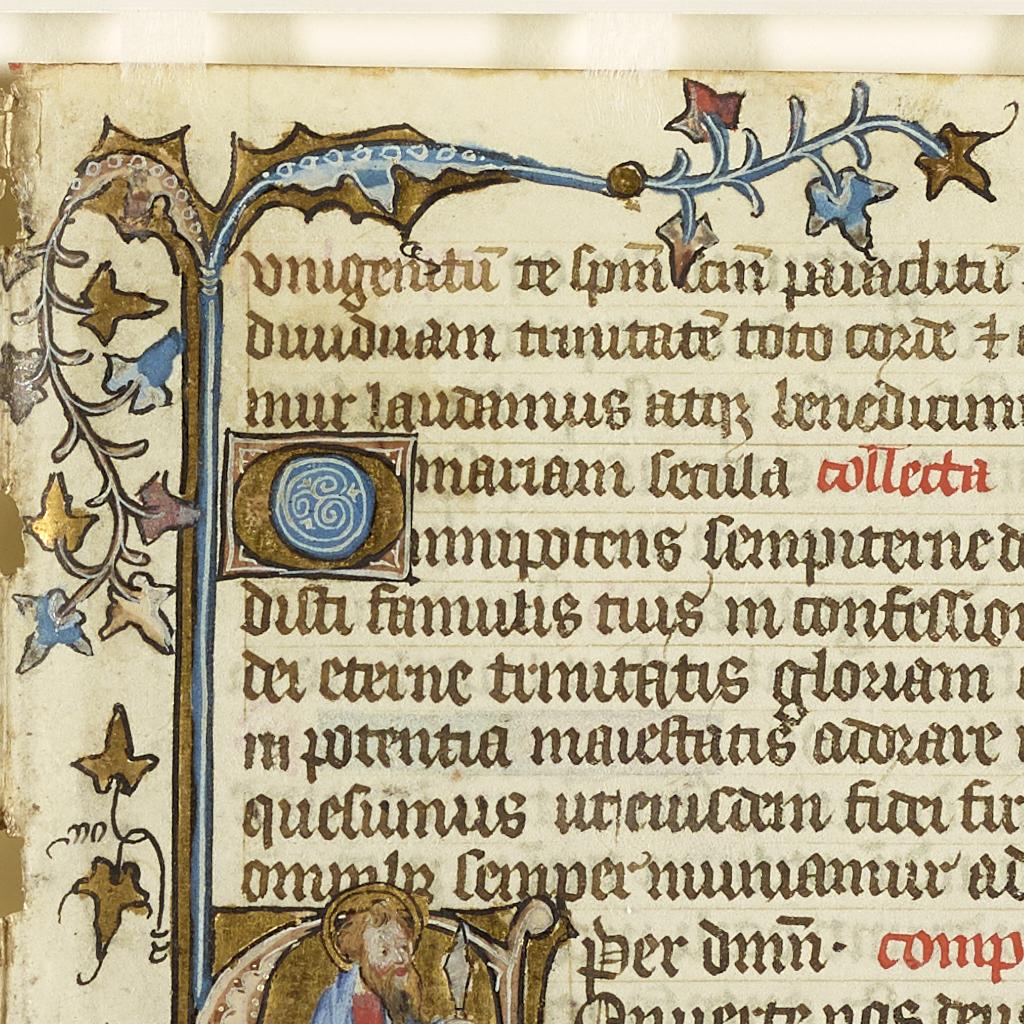 vnigenitū te spm̄ scm̄ paraclitū
diuiduam trinitatē toto corde ⁊
mur laudamus atqꝫ benedicim
mariam secula collecta
Omnipotens sempiterne de
disti famulis tuis in confession
dei eterne trinitatis gloriam
in potentia maiestatis adorare
quesumus ut eiusdem fidei fir
omnibꝫ semper muniamur ad
Per dmn̄· comp
Conuerte nos deus